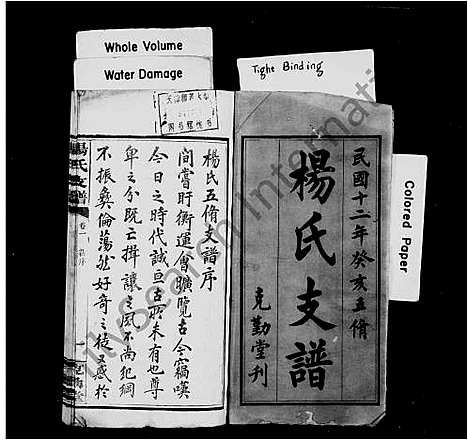 Whole Volume
Water Damage
Tight Binding
Colored Paper
民國十二年癸亥五脩
楊氏支譜
克勤堂刊
楊氏五脩支譜序
間嘗盱衡運會曠覽古今竊嘆
今日之時代誠亘古所未有也尊
卑之分既亡揖讓之風不尚犯綱
不振彝倫蕩然好奇之徒又惑於
楊氏支譜
卷一